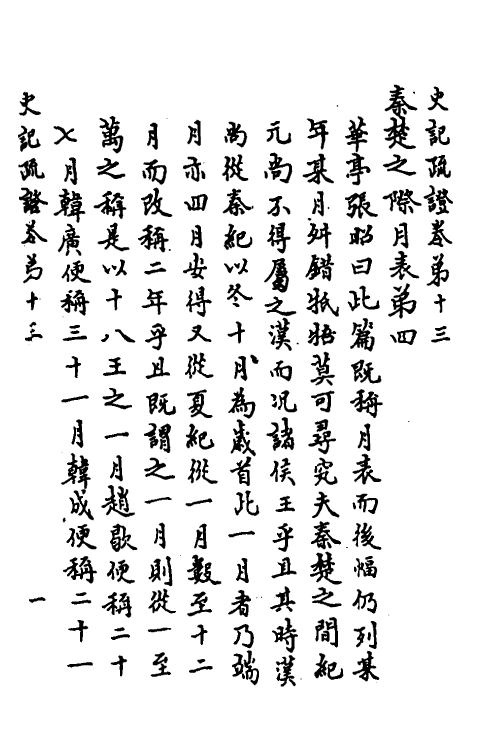 史記疏證卷弟十三
秦楚之際月表弟四
華亭張昭曰此篇既稱月表而後幅仍列某
年某月舛錯牴牾莫可尋究夫秦楚之間紀
元尚不得屬之漢而况諸侯王乎且其時漢
尚從秦紀以冬十月為歲首此一月者乃端
月亦四月安得又從夏紀從一月數至十二
月而改稱二年乎且既謂之一月則從一至
萬之稱是以十八王之一月趙歇便稱二十
七月韓廣便稱三十一月韓成便稱二十一
史記疏證卷弟十三
一